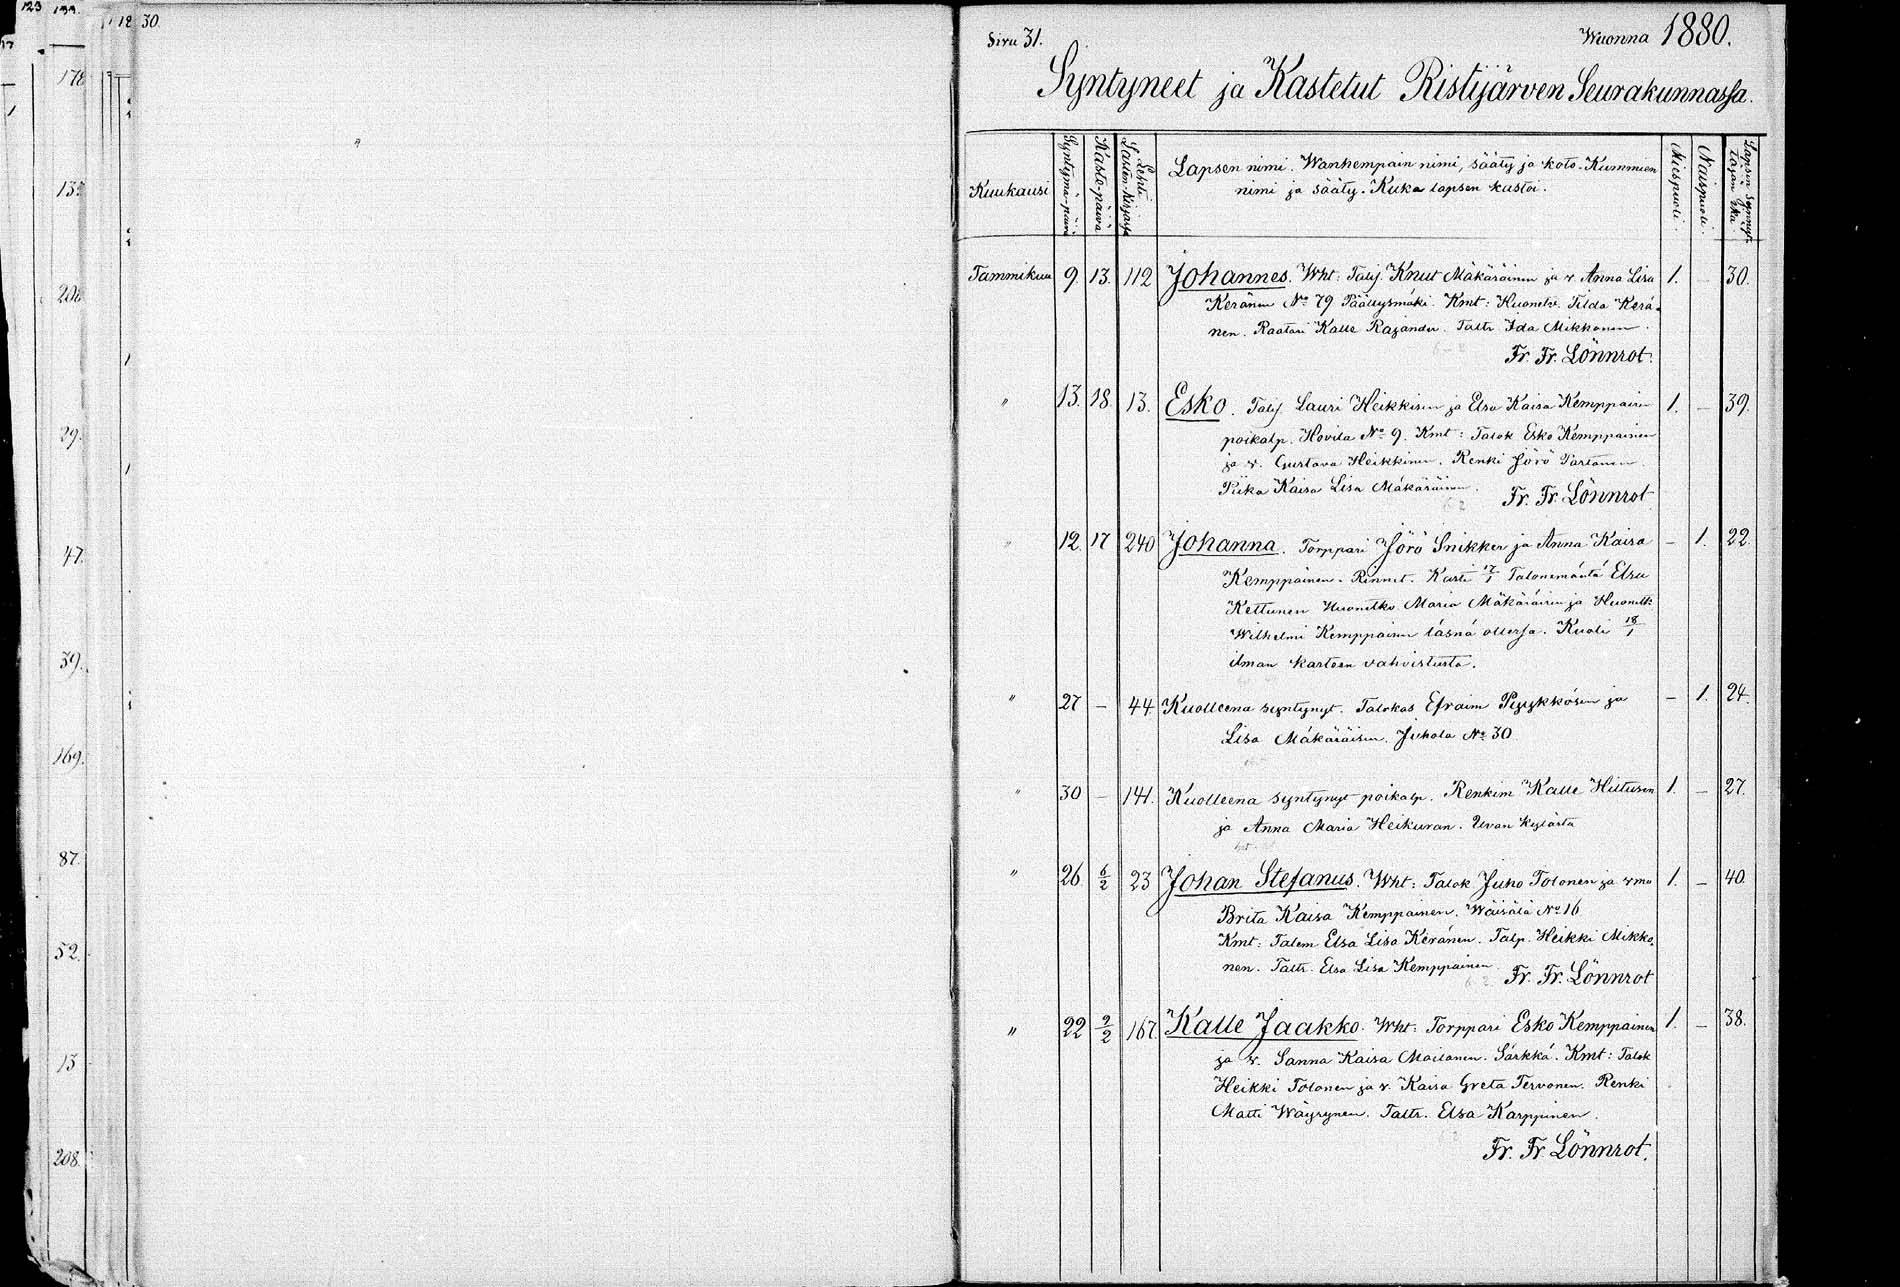 123 133.
17
178
1
200
29.
47.
39.
169.
87.
52.
13
208.
12 30.
Sivu 31. Wuonna 1880.
Syntyneet ja Kastetut Ristijärven Seurakunnassa.
Kuukausi
Syntymä-päivä
Kaste-päivä
Lehti Lasten-kirjassa
Lapsen nimi. Wanhempain nimi, sääty ja koto. Kummien
nimi ja sääty. Kuka lapsen kastoi.
Miespuoli.
Naispuoli.
Lapsen synnyttäjän ikä
Tammikuu 9. 13. 112 Johannes. Wht: Talij. Knut Mäkäräinen ja v. Anna Lisa 1. – 30.
Keränen No 79 Päätysmäki. Kmt: Huonelv. Tilda Kerä-
nen. Raatari Kalle Rajander. Taltr Ida Mikkonen.
Fr. Fr. Lönnrot.
" 13. 18. 13. Esko. Talij Lauri Heikkisen ja Elsa Kaisa Kemppaisen 1. – 39.
poikalp. Hovila No 9. Kmt: Talok Esko Kemppainen
ja v. Gustava Heikkinen. Renki Jörö Partanen.
Piika Kaisa Lisa Mäkäräinen. Fr. Fr. Lönnrot
" 12. 17 240 Johanna. Torppari Jörö Snikker ja Anna Kaisa – 1. 22.
Kemppainen. Rinnet. Kasti 17/1 Talonemäntä Elsa
Kettunen Huonelko Maria Mäkäräisen ja Huonelk:
Wilhelmi Kemppainen läsnä ollessa. Kuoli 18/1
ilman kasteen vahvistusta.
" 27 – 44 Kuolleena syntynyt. Talokas Efraim Pyykkösen ja – 1. 24.
Lisa Mäkäräisen. Juhola No 30
" 30 – 141. Kuolleena syntynyt poikalp. Renkim Kalle Hiltusen 1. – 27.
ja Anna Maria Heikuran. Uvan kylästä
" 26 6/2 23 Johan Stefanus. Wht: Talok Juho Tolonen ja vmo 1. – 40.
Brita Kaisa Kemppainen. Wäisälä No 16
Kmt: Talem Elsa Lisa Keränen. Talp. Heikki Mikko-
nen. Taltr. Elsa Lisa Kemppainen Fr. Fr. Lönnrot
" 22 2/2 167. Kalle Jaakko. Wht: Torppari Esko Kemppainen 1. – 38.
ja v. Sanna Kaisa Moilanen. Särkkä. Kmt: Talok
Heikki Tolonen ja v. Kaisa Greta Tervonen. Renki
Matti Wäyrynen. Taltr. Elsa Karppinen.
Fr. Fr. Lönnrot.